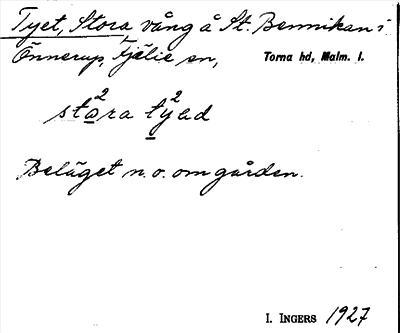 Tyet, Stora, vång å St. Bennikan i
Önnerup, Fjelie sn, Torna hd, Malm. l.
sto²ra ty²ad
Beläget n.o. om gården.
I. INGERS 1927